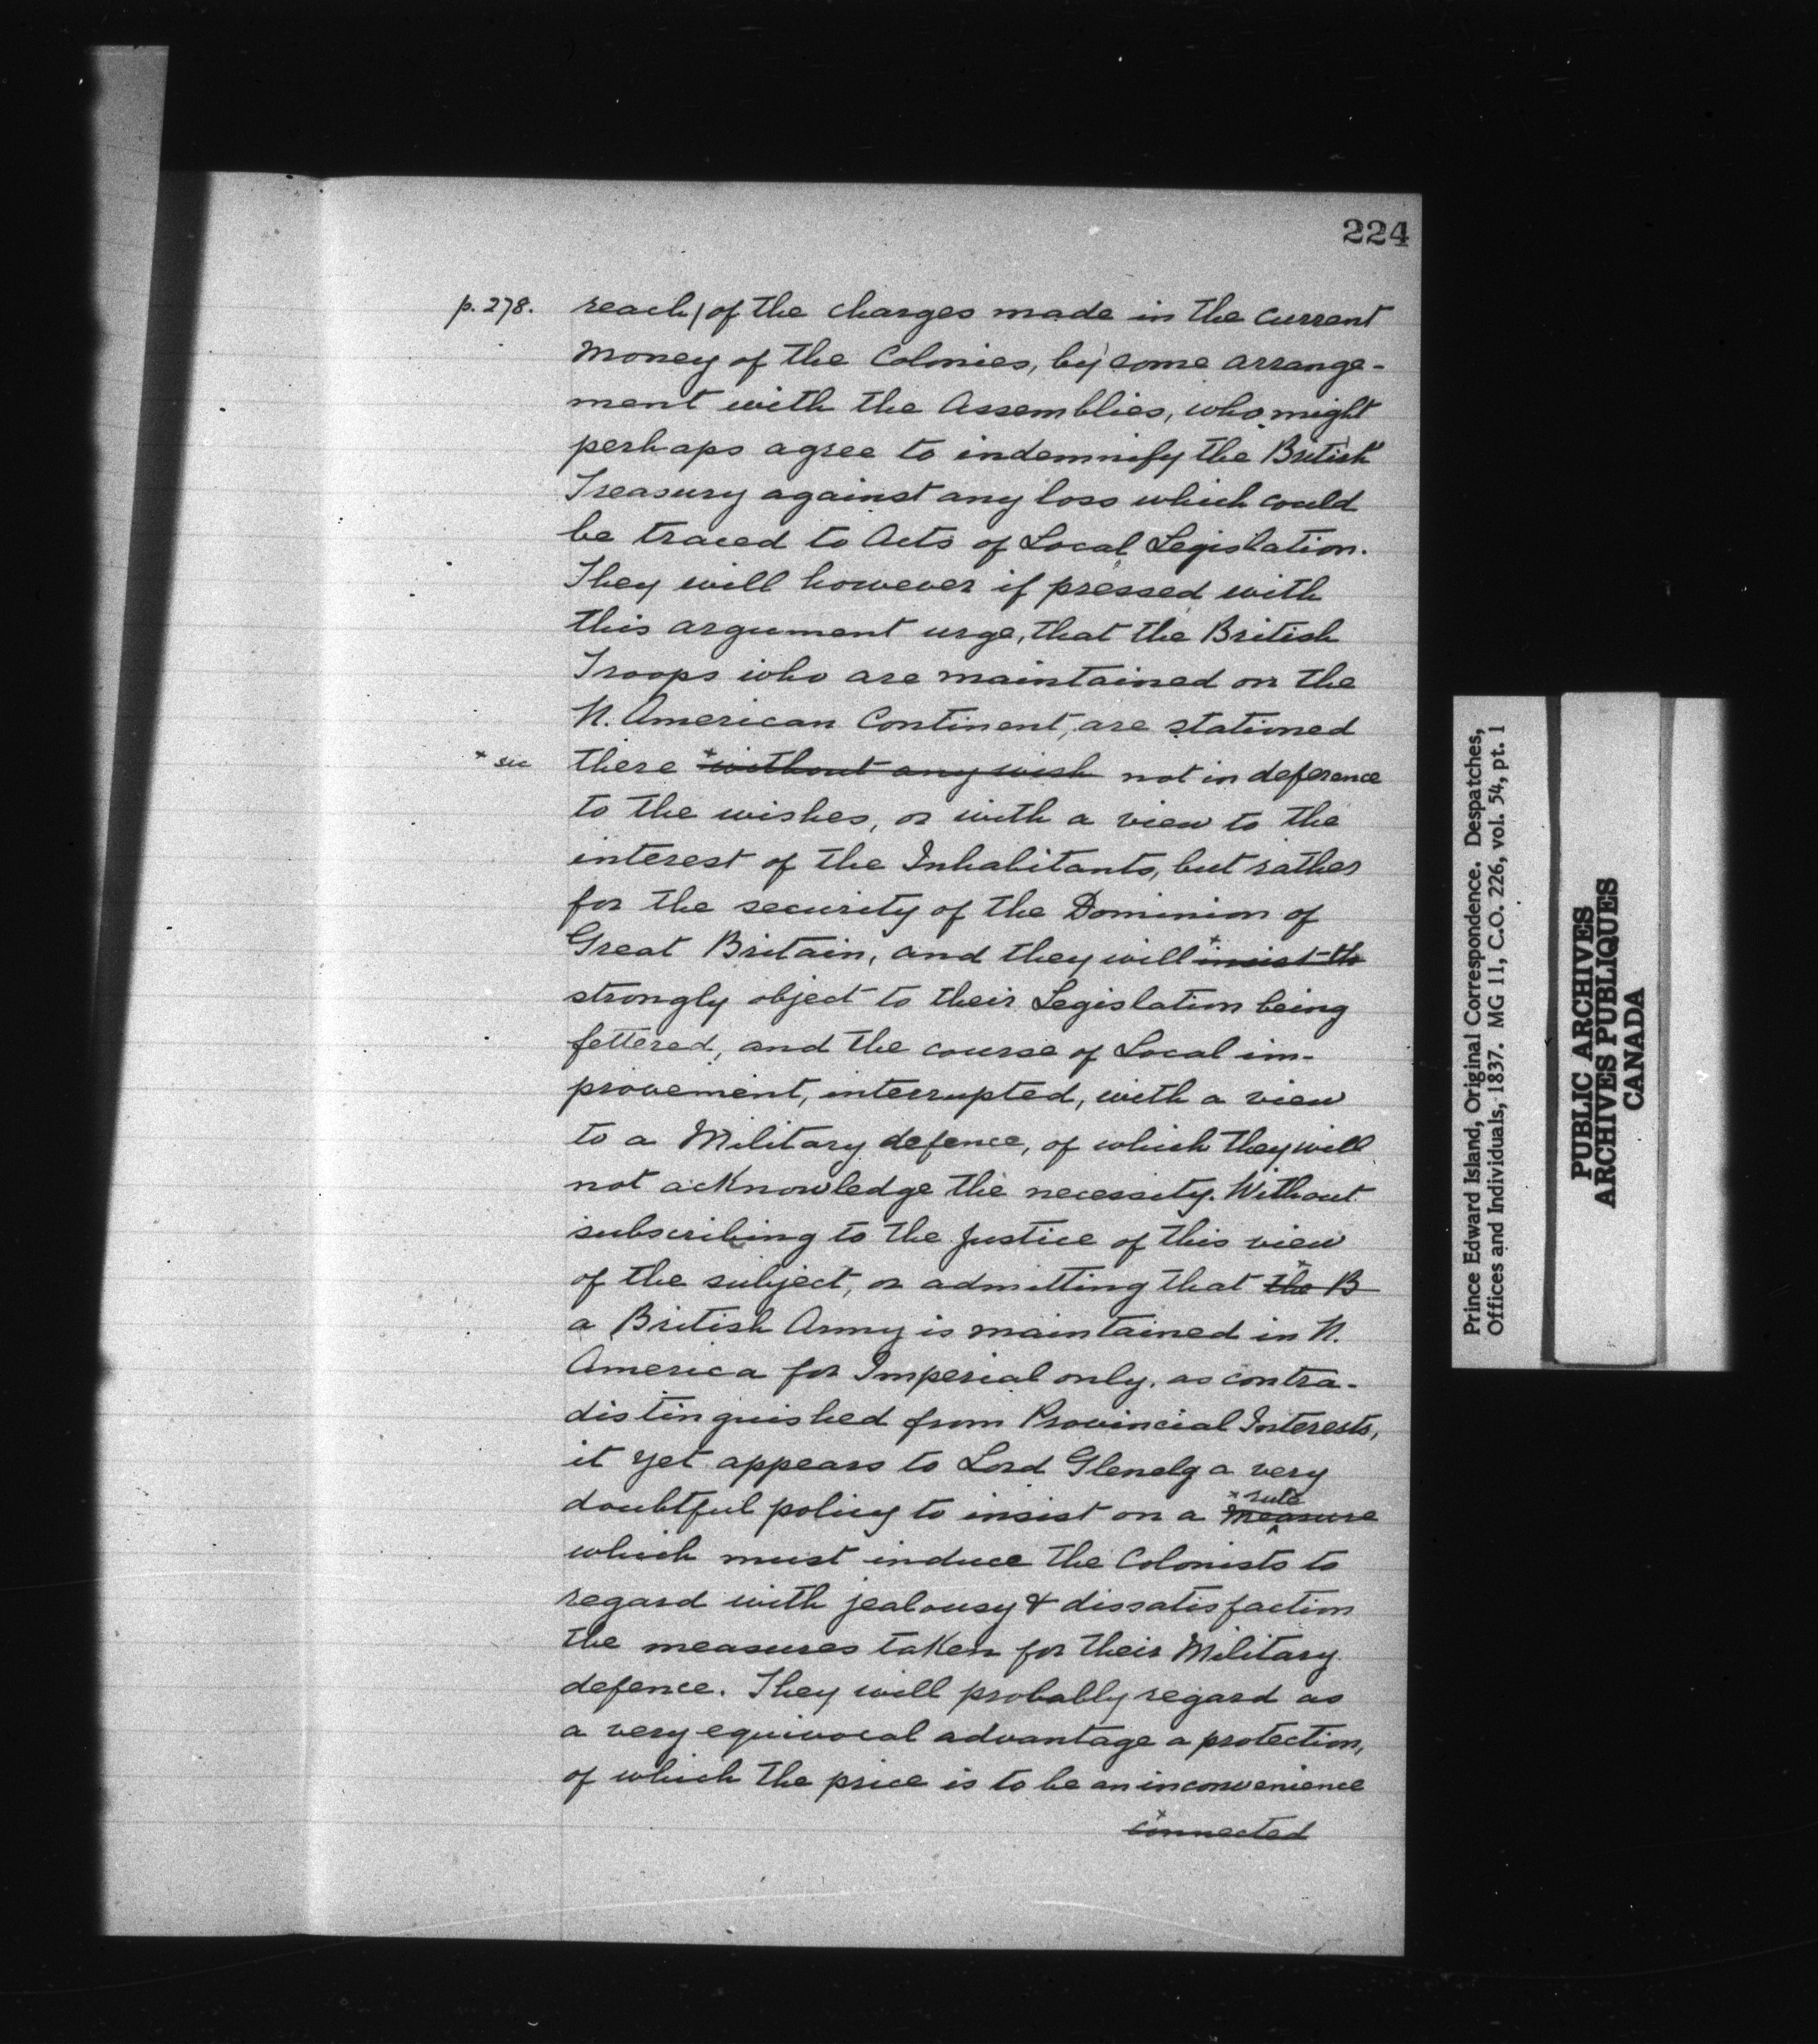 224
p. 278. reach/of the charges made in the current
money of the Colonies, by some arrange-
ment with the Assemblies, who might
perhaps agree to indemnify the British
Treasury against any loss which could
be traced to Acts of Local Legislation.
They will however if pressed with
this argument urge, that the British
Troops who are maintained on the
N. American Continent, are stationed
+ sic there + without any wish not in deference
to the wishes, or with a view to the
interest of the Inhabitants, but rather
for the security of the Dominion of
Great Britain, and they will + insist th
strongly object to their Legislation being
fettered, and the course of Local im-
provement, interrupted, with a view
to a Military defence, of which they will
not acknowledge the necessity. Without
subscribing to the Justice of this view
of the subject, or admitting that + the B
a British Army is maintained in N.
America for Imperial only, as contra-
distinguished from Provincial Interests,
it yet appears to Lord Glenelg a very
doubtful policy to insist on a + measure rule
which must induce the Colonists to
regard with jealousy & dissatisfaction
the measures taken for their Military
defence. They will probably regard as
a very equivocal advantage a protection,
of which the price is to be an inconvenience
+ connected
Prince Edward Island, Original Correspondence. Despatches,
Offices and Individuals, 1837. MG 11, C.O. 226, vol. 54, pt. 1
PUBLIC ARCHIVES
ARCHIVES PUBLIQUES
CANADA